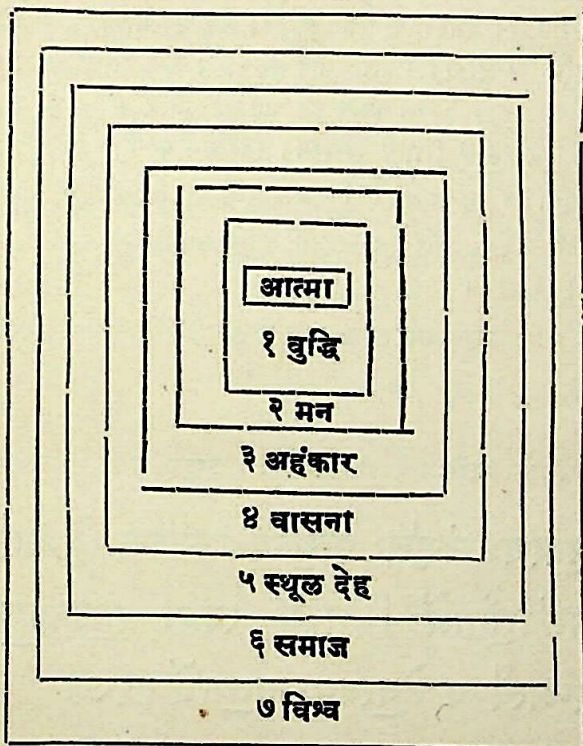 आत्मा
१ वुद्धि
२ मन
३ अहंकार
४ वासना
५ स्थूल देह
६ समाज
७ विश्व